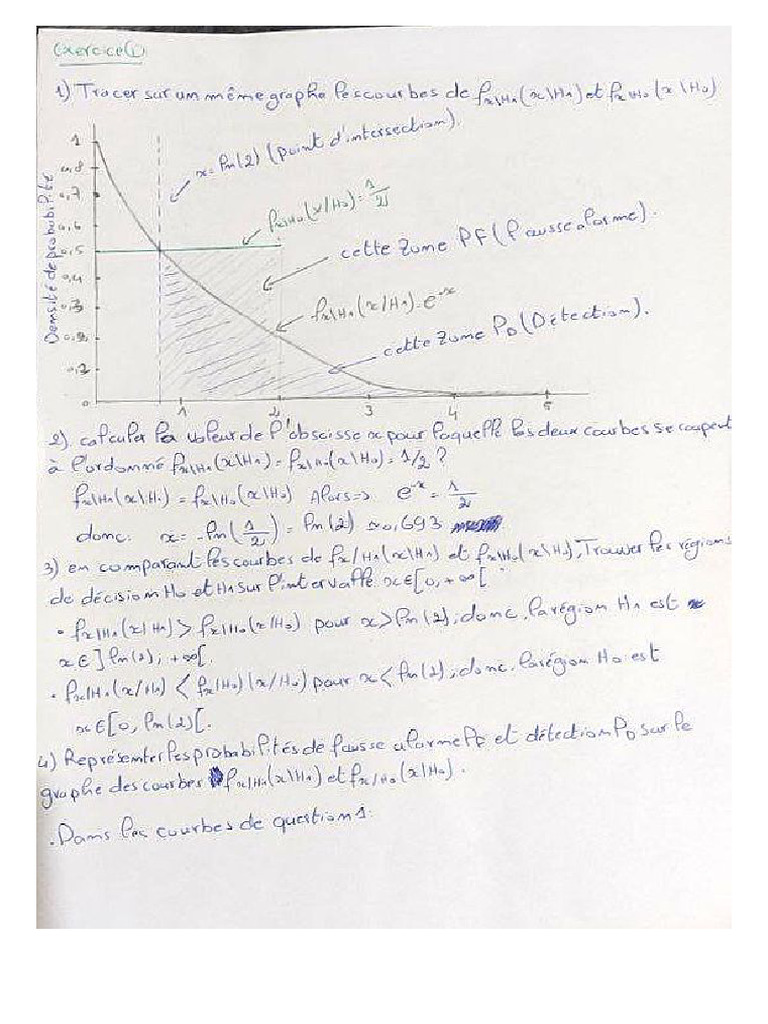 Exercice(1)
1) Tracer sur un même graphe les courbes de fx\H1(x\H1) et fx\H0(x\H0)
x=ln(2) (point d'intersection).
fx\H0(x/H0)=1/2
cette zone PF (Fausse alarme).
fx\H1(x/H1)=e^-x
cette zone PD (Détection).
Densité de probabilité
1
0,8
0,7
0,6
0,5
0,4
0,3
0,2
0
1 2 3 4 5
2) calculer la valeur de l'abscisse x pour laquelle les deux courbes se coupent
à l'ordonné fx\H1(x\H1)=fx\H0(x\H0)=1/2 ?
fx\H1(x\H1)=fx\H0(x\H0) Alors=> e^-x=1/2
donc: x=-ln(1/2)=ln(2)≈0,693
3) en comparant les courbes de fx/H1(x\H1) et fx\H0(x\H0), Trouver les régions
de décision H0 et H1 sur l'intervalle x∈[0,+∞[ :
• fx\H1(x/H1) > fx\H0(x/H0) pour x>ln(2), donc la région H1 est
x∈]ln(2); +∞[.
• fx/H1(x/H1) < fx/H0(x/H0) pour x<ln(2), donc la région H0 est
x∈[0, ln(2)[.
4) Représenter les probabilités de fausse alarme PF et détection PD sur le
graphe des courbes fx\H1(x\H1) et fx/H0(x/H0).
. Dans les courbes de question 1.